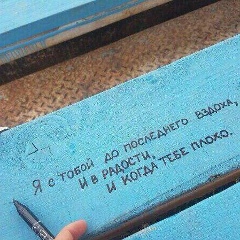 Я с тобой до последнего вздоха,
и в радости,
и когда тебе плохо.